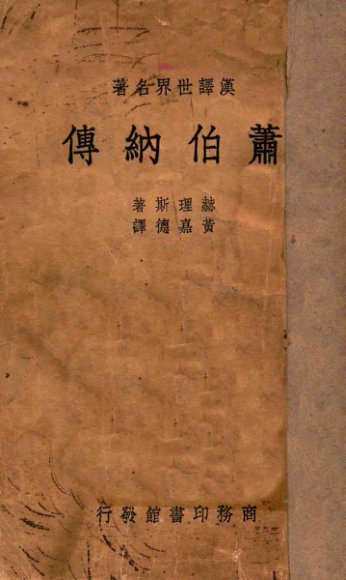 漢譯世界名著
蕭伯納傳
赫理斯著
黃嘉德譯
商務印書館發行